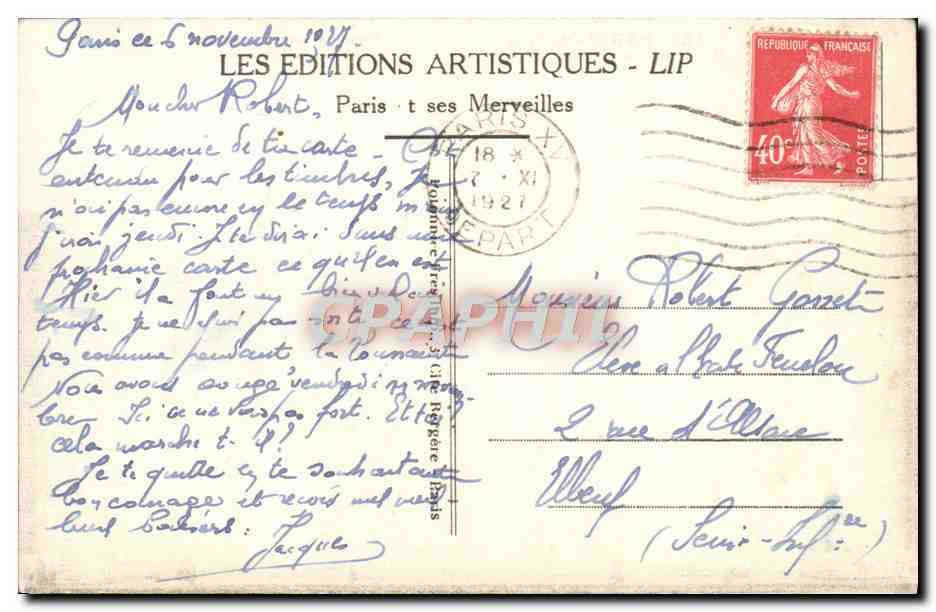 Paris ce 6 novembre 1927
LES EDITIONS ARTISTIQUES - LIP
Paris et ses Merveilles
REPUBLIQUE FRANÇAISE
40c
POSTES
PARIS XV
18 *
7 • XI
1927
DEPART
Mon cher Robert,
Je te remercie de ta carte -
entendu pour les timbres, Je
n'ai pas encore eu le temps mais
j'irai jeudi. Je te dirai dans une
prochaine carte ce qu'il en est
Hier il a fait un beau
temps. Je ne suis pas sorti ce n'est
pas comme pendant la Toussaint
Nous avons congé vendredi 11 novem-
bre. Ici ca ne va pas fort. Et toi
cela marche t-il?
Je te quitte en te souhaitant
bon courage et recois mes meil
leurs baisers:
Jacques
Cité Bergère - Paris
CPAPHIL
Monsieur Robert Gosset
Eleve a l'Ecole Fenelon
2 rue d'Alsace
Elbeuf
(Seine-Infre)